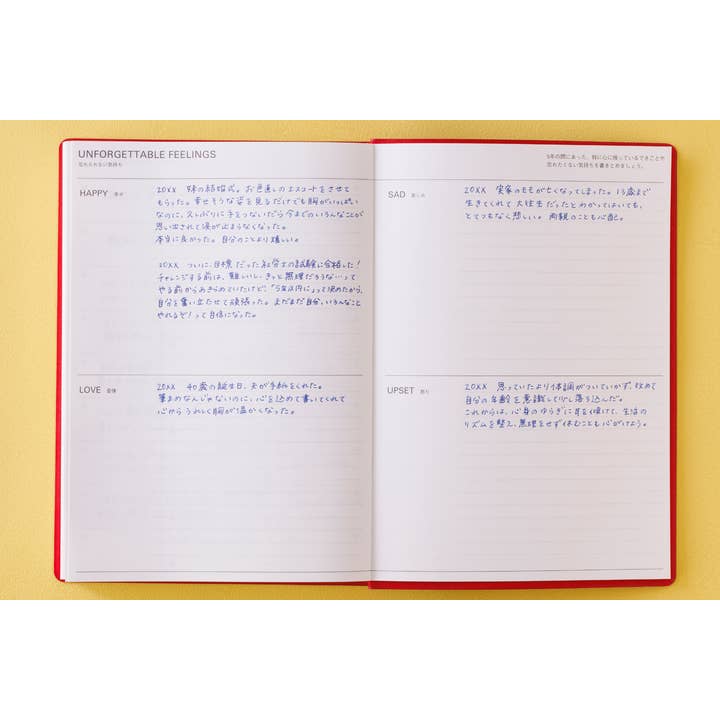 UNFORGETTABLE FEELINGS
忘れられない気持ち
5年の間にあった、特に心に残っているできごとや
忘れたくない気持ちを書きとめましょう。
HAPPY 幸せ
20XX 妹の結婚式。お色直しのエスコートをさせて
もらった。幸せそうな姿を見るだけでも胸がいっぱい
なのに、久しぶりに手をつないだら今までのいろんなことが
思い出されて涙が止まらなくなった。
本当に良かった。自分のことより嬉しい。
20XX ついに、目標だった社労士の試験に合格した!
チャレンジする前は、難しいし、きっと無理だろうな…って
やる前からあきらめていたけど、「5年以内に」って決めたから、
自分を奮い立たせて頑張った。まだまだ自分、いろんなこと
やれるぞ!って自信になった。
SAD 悲しみ
20XX 実家のももが亡くなってしまった。13歳まで
生きてくれて大往生だったとわかってはいても、
とてつもなく悲しい。両親のことも心配。
LOVE 愛情
20XX 40歳の誕生日、夫が手紙をくれた。
筆まめなんじゃないのに、心を込めて書いてくれて
心からうれしく胸が温かくなった。
UPSET 怒り
20XX 思っていたより体調がついていかず、改めて
自分の年齢を意識して少し落ち込んだ。
これからは、心身のゆらぎに耳を傾けて、生活の
リズムを整え、無理をせず休むことも心がけよう。